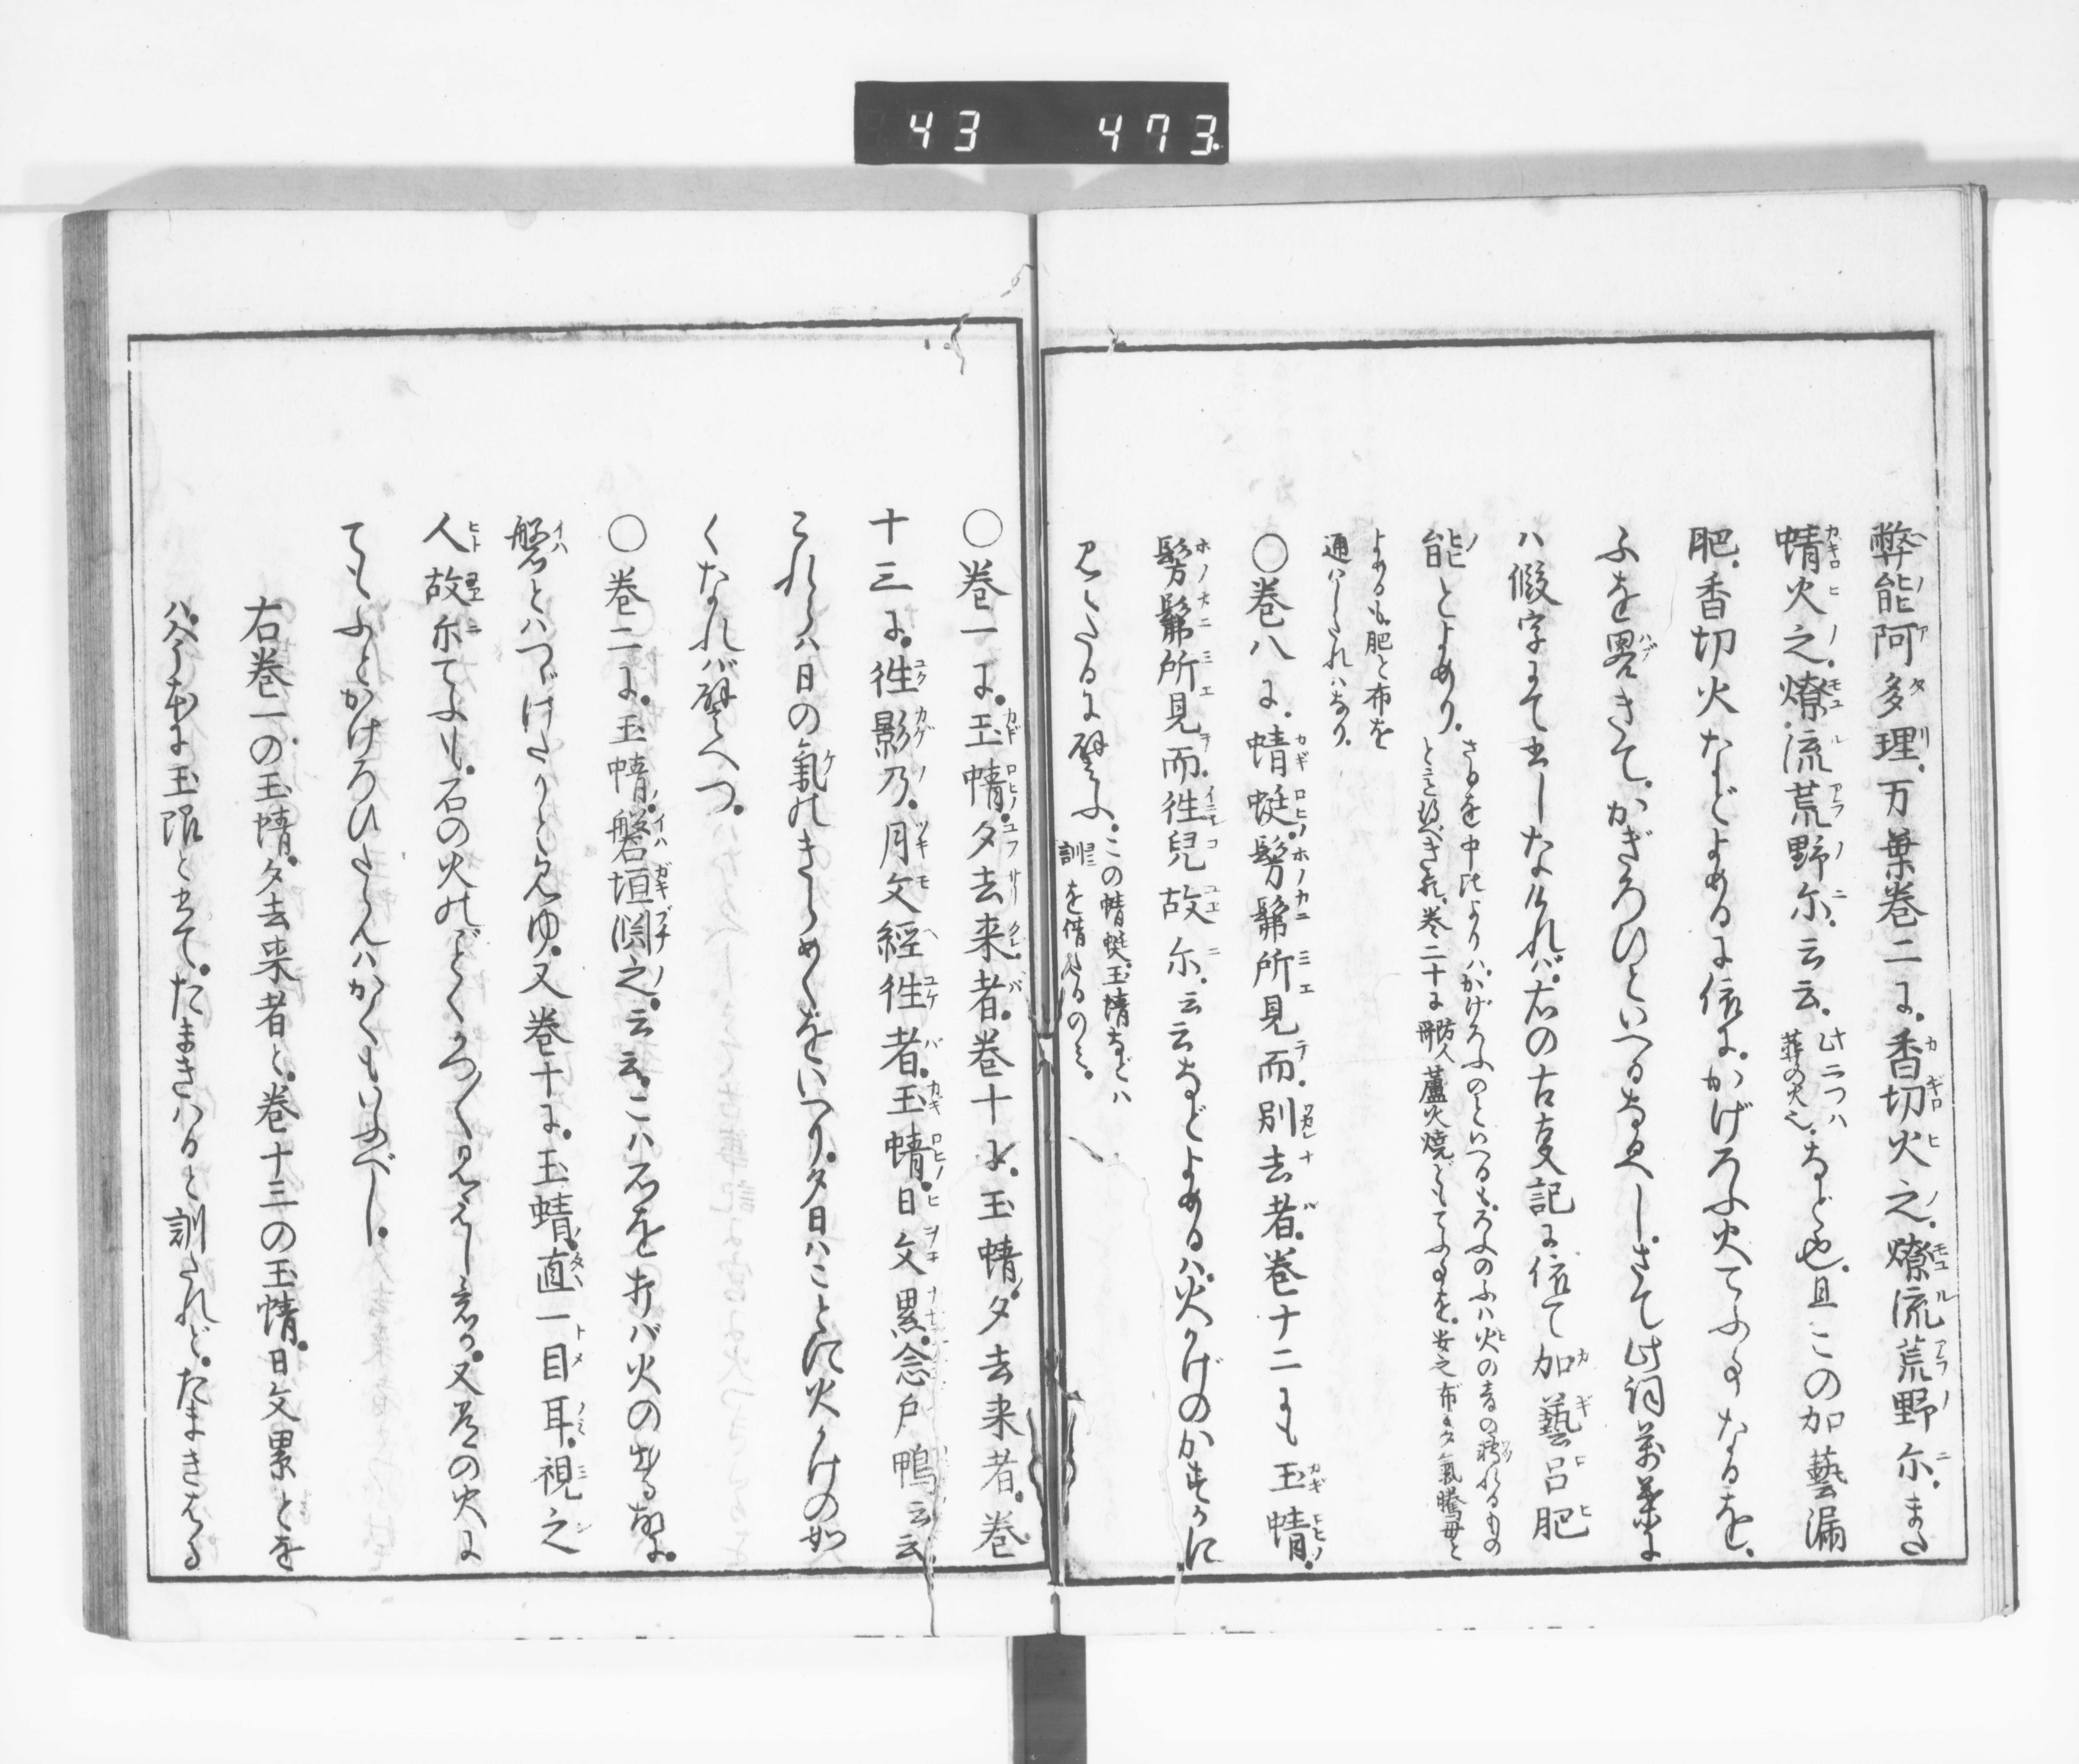 43 473
弊能阿多理。万葉巻二に。香切火之。燎流荒野尓。また
蜻火之。燎流荒野尓。云云。此二つハ葬の火也。など也。且この加藝漏
肥。香切火などよめるに依に。かげろふ火てふ事なるを。
ふを畧きて。かぎろひといへるなるべし。さて此詞万葉に
ハ假字にて出しなければ。右の古事記に依て加藝呂肥
能とよめり。さるを中比よりハ。かげろふのといへるも。ろふのふハ火の音の轉れるもの
と言ふべきか。巻二十に防人冊蘆火焼どもてふ事を。安之布多氣騰母と
よめるも。肥と布を
通ハしたれハなり。
○巻八に。蜻蜓髣髴所見而。別去者。巻十二にも玉蜻。
髣髴所見而。徃兒故尓。云云などよめるハ。火かげのかすかに
見えたるに譬ふ。この蜻蜓。玉蜻などハ
訓を借たるのミ。
○巻一に。玉蜻。夕去来者。巻十に。玉蜻。夕去来者。巻
十三に。徃影乃。月文經徃者。玉蜻。日文累。念戸鴨云云。
これらハ日の氣のきらめくをいへり。夕日ハことに火かげの如
くなれバ譬へつ。
○巻二に。玉蜻。磐垣渕之。云云。こハ石を打バ火の出る故に。
磐とハつゞけたりと見ゆ。又巻十に。玉蜻。直一目耳。視之
人故尓てふも。石の火のごとくかつ〱見えし意か。又其の火に
てもふとかけろひたらんハかくもいふべし。
右巻一の玉蜻。夕去来者と。巻十三の玉蜻。日文累とを
ハ。今本に玉限とかきて。たまきハると訓たれど。たまきはる